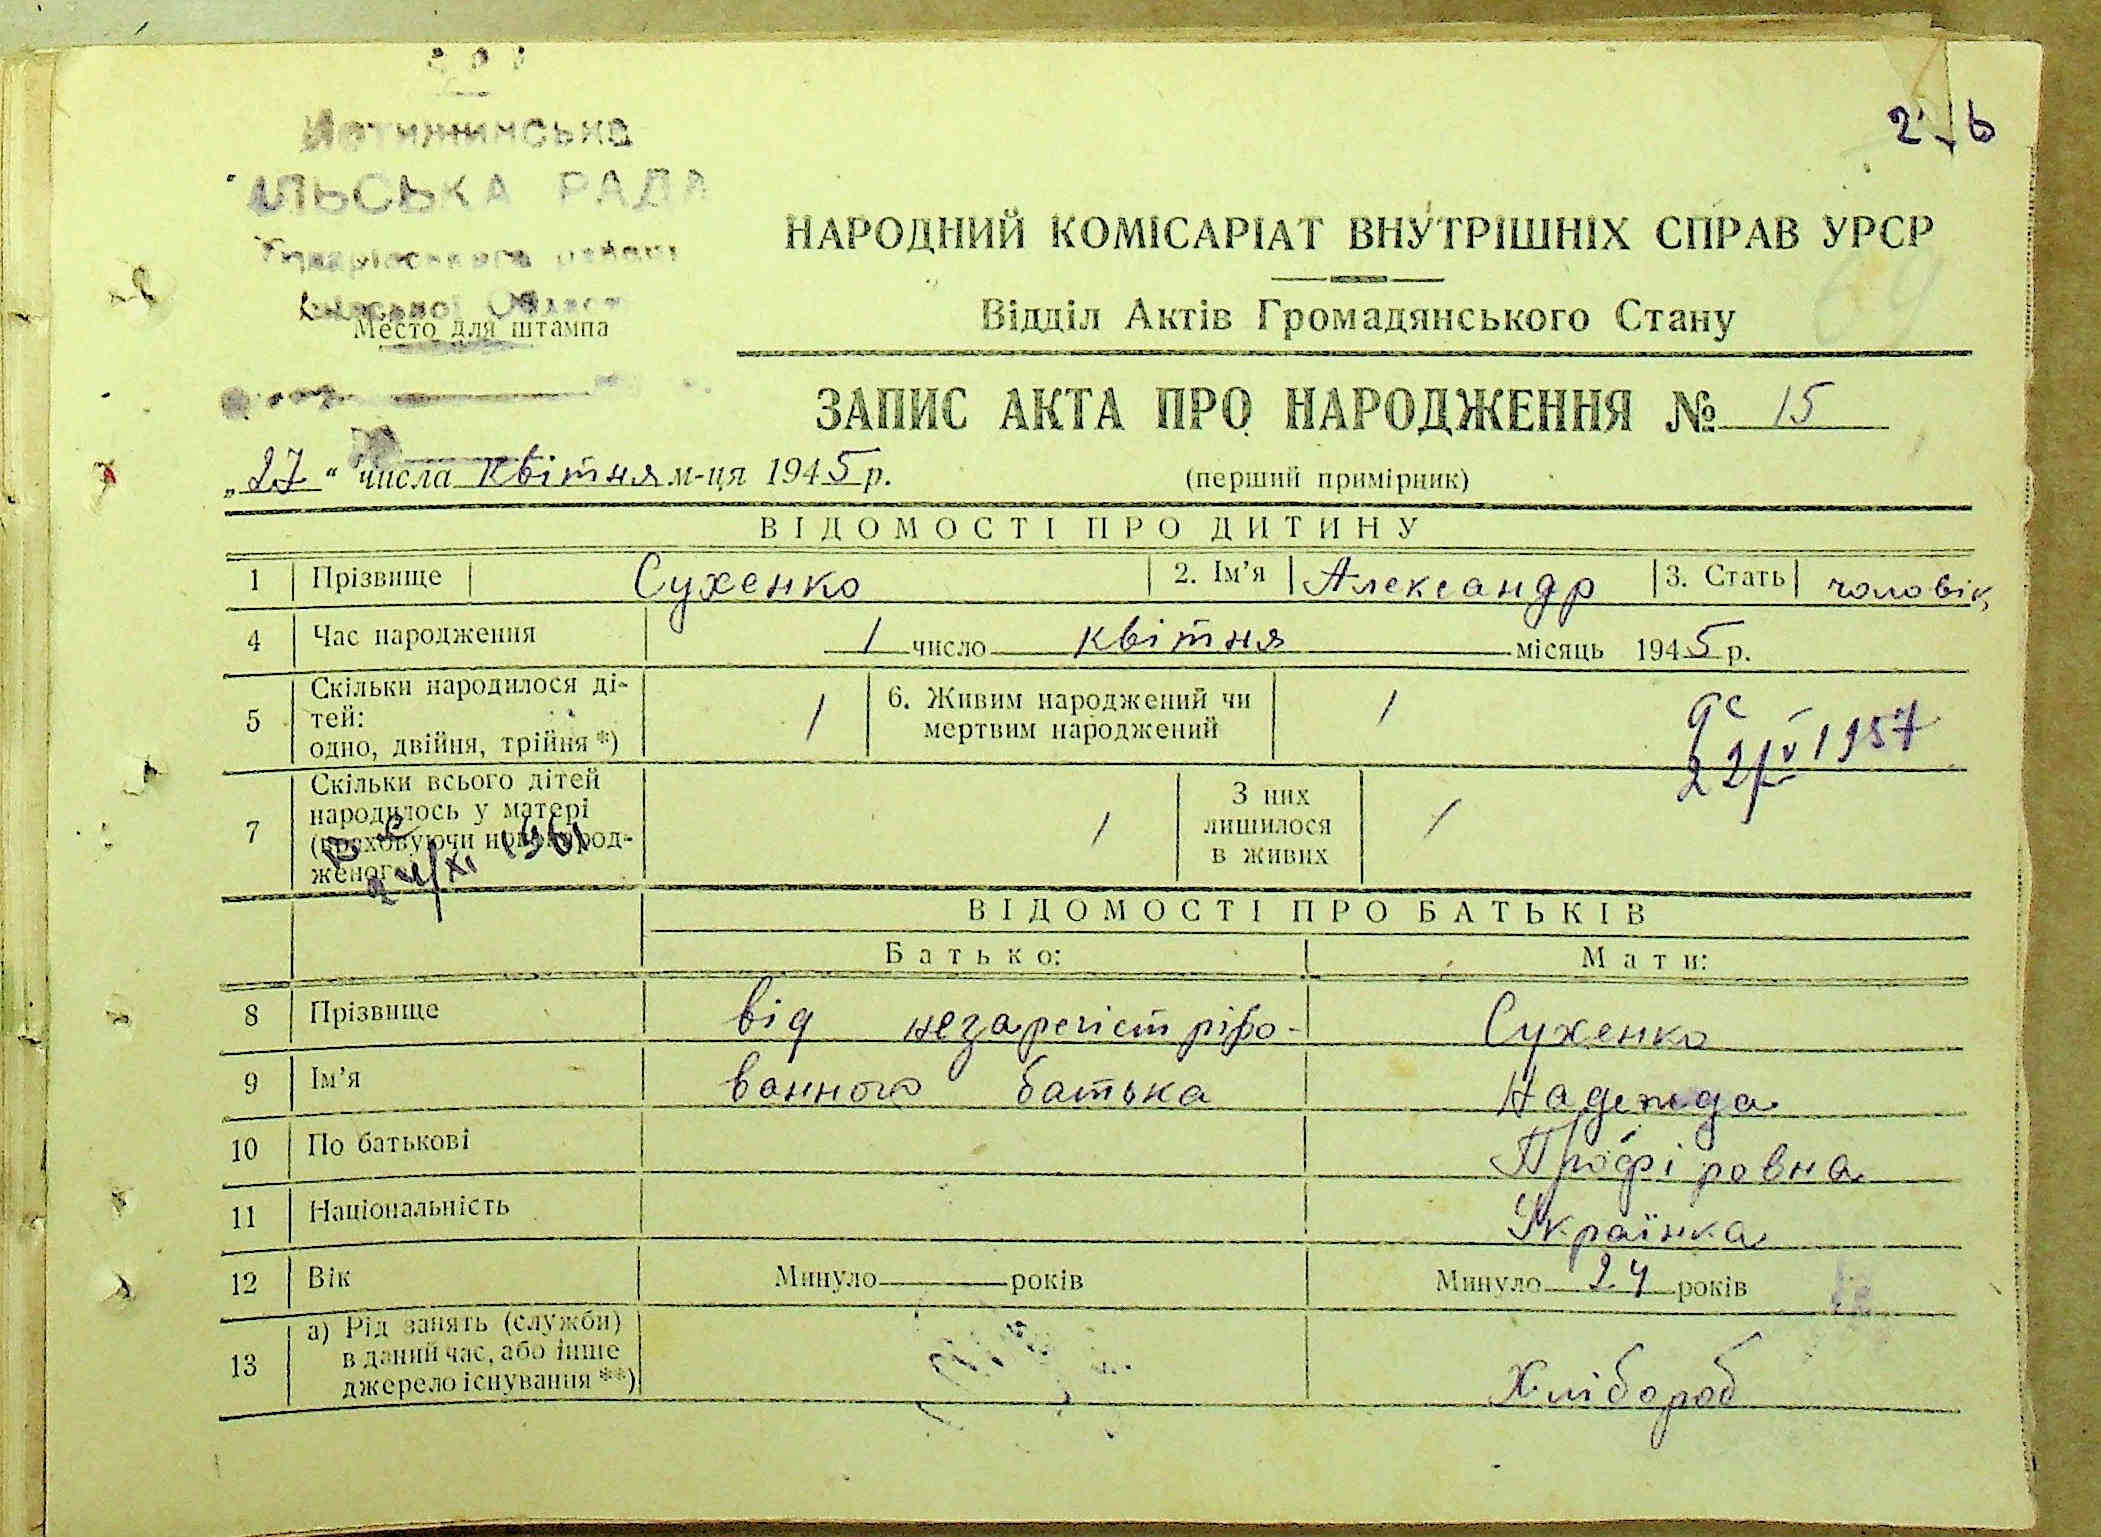 Мотижинська
ІЛЬСЬКА РАДА
Місто для штампа
НАРОДНИЙ КОМІСАРІАТ ВНУТРІШНІХ СПРАВ УРСР
Відділ Актів Громадянського Стану
ЗАПИС АКТА ПРО НАРОДЖЕННЯ № 15
„27“ числа квітня м-ця 1945 р. (перший примірник)
ВІДОМОСТІ ПРО ДИТИНУ
1 Прізвище Сухенко 2. Ім’я Александр 3. Стать чоловік
4 Час народження 1 число квітня місяць 1945 р.
5 Скільки народилося ді-
тей:
одно, двійня, трійня *) 1 6. Живим народжений чи
мертвим народжений 1
1957
7 Скільки всього дітей
народилось у матері
(враховуючи новонарод-
женого) 1 З них
лишилося
в живих 1
1961
ВІДОМОСТІ ПРО БАТЬКІВ
Батько: Мати:
8 Прізвище від незарегістріро- Сухенко
9 Ім’я ванного батька Надежда
10 По батькові Профіровна
11 Національність Українка
12 Вік Минуло років Минуло 24 років
13 а) Рід занять (служби)
в даний час, або інше
джерело існування **) Хлібороб